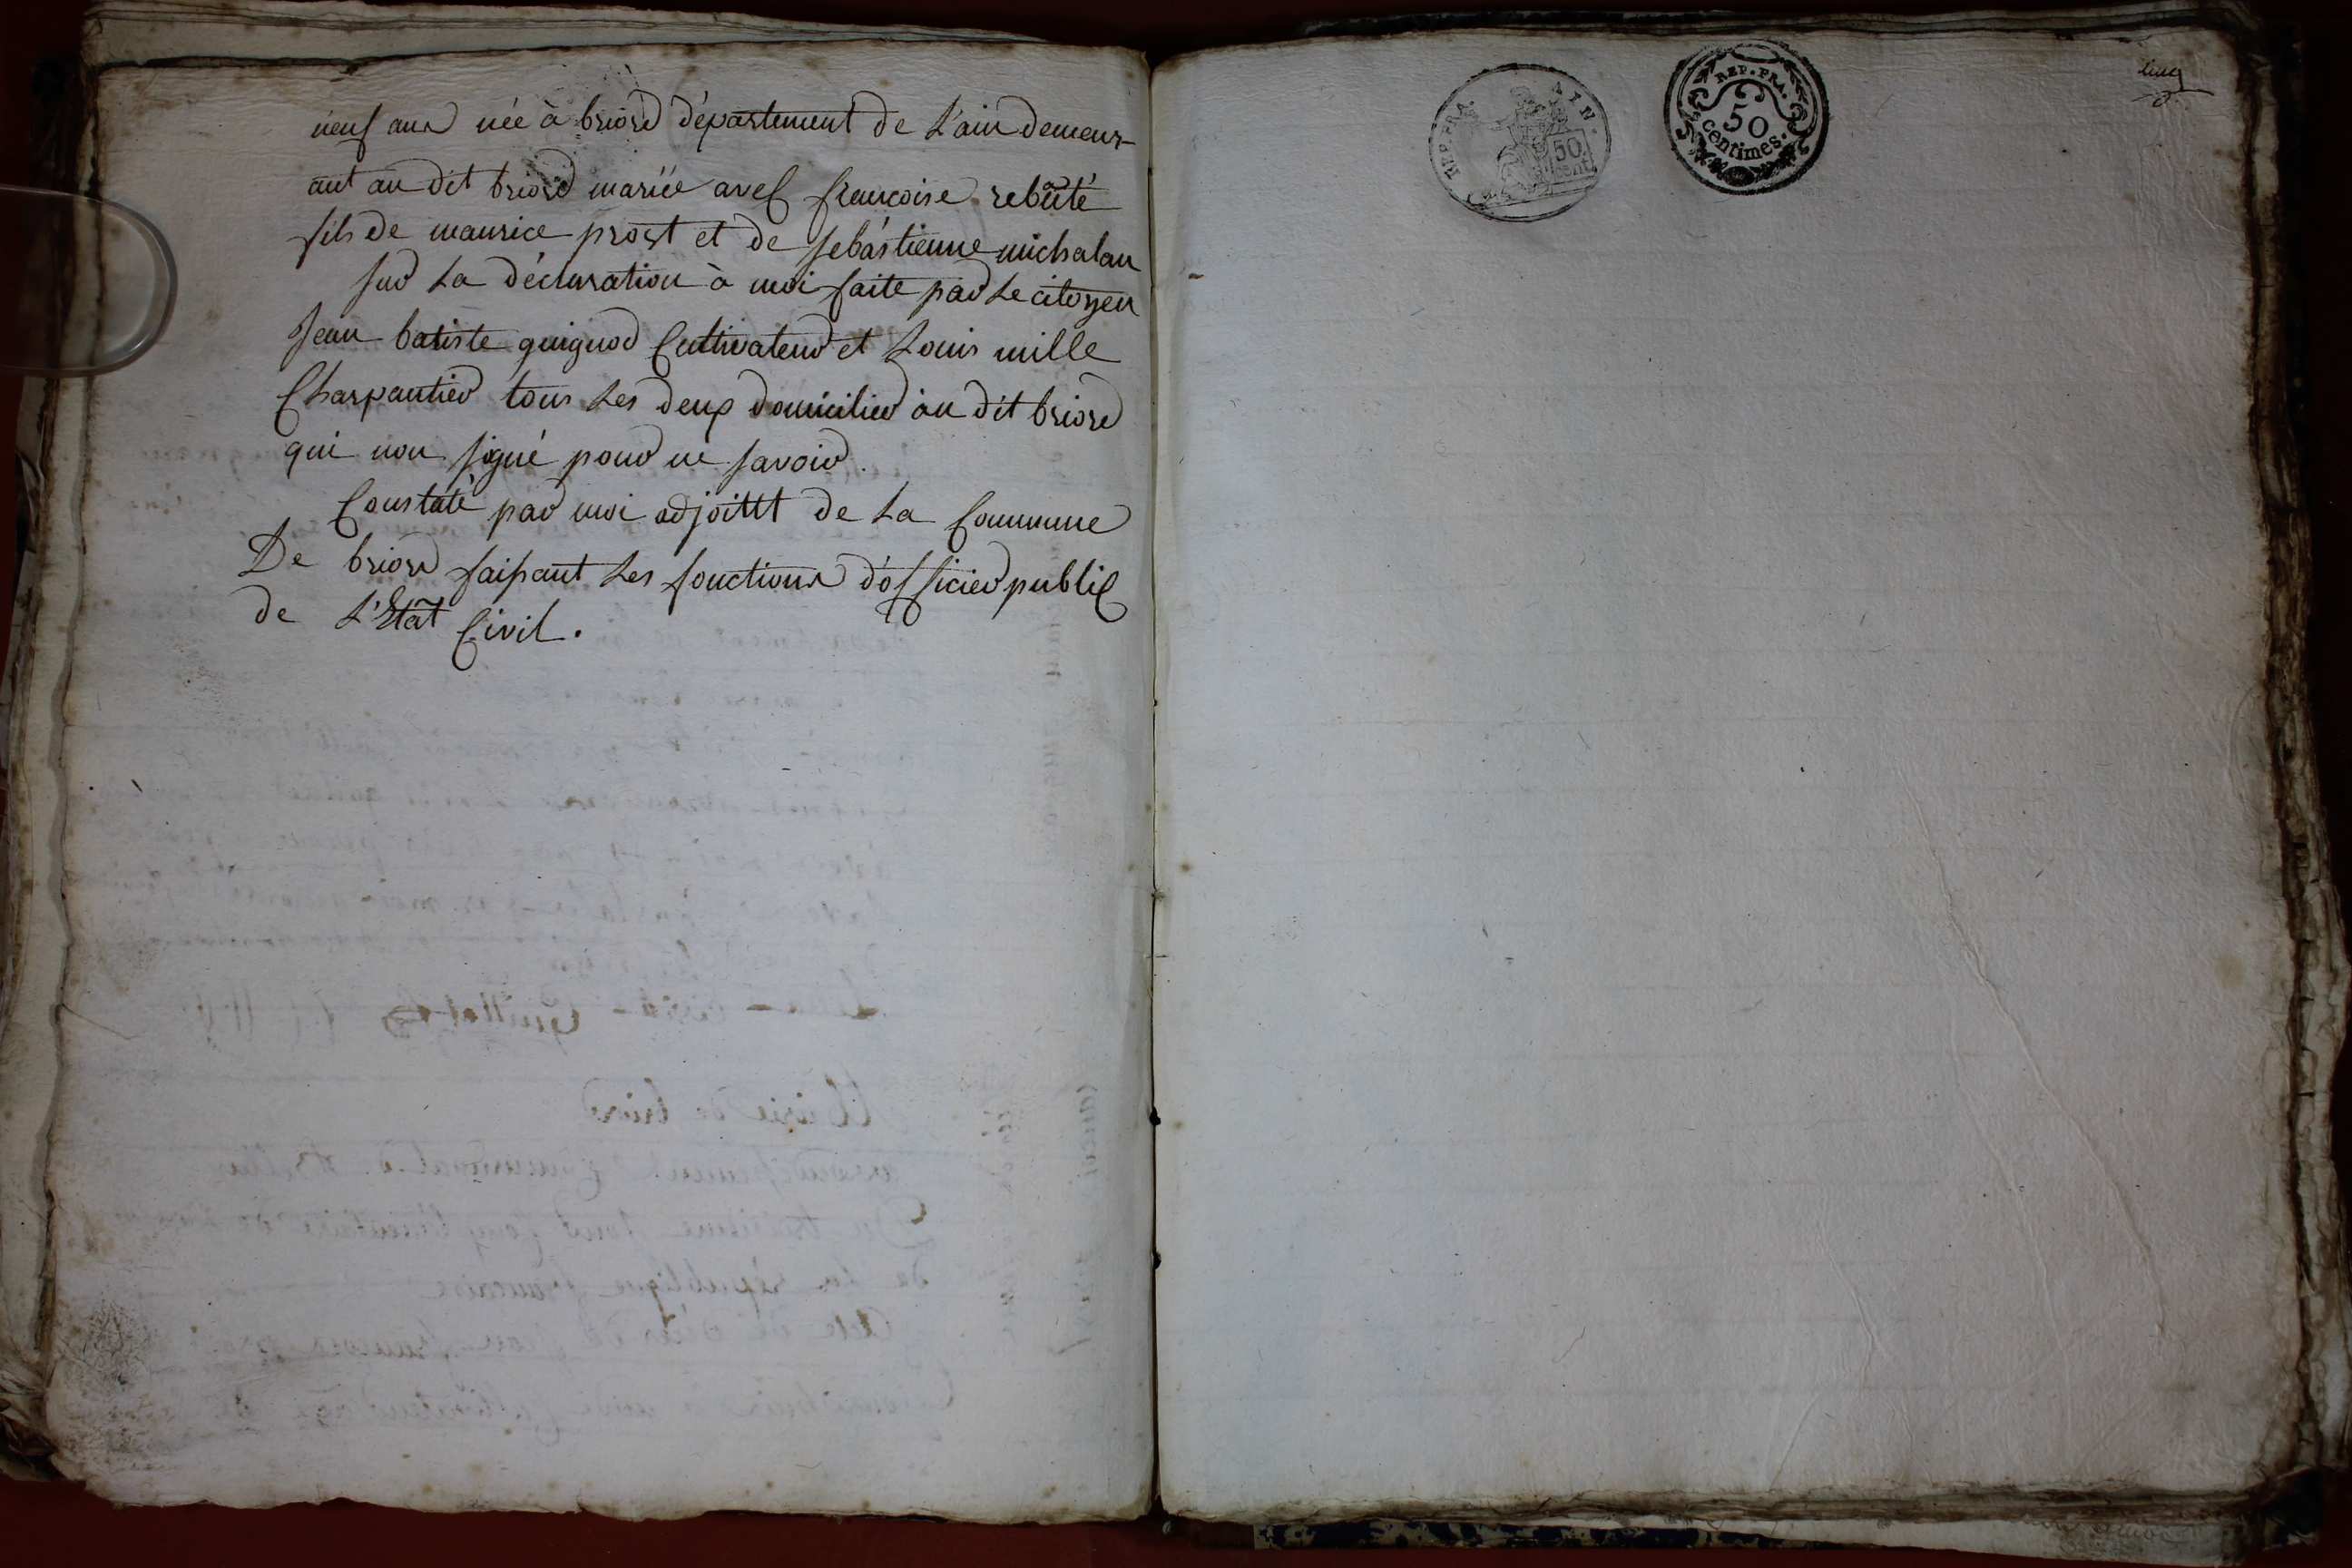 neuf ans née à briord département de L'ain demeur-
ant au dit briord mariée avec francoise rebaté
fils de maurice prost et de sebástienne michalan
sur La déclaration à moi faite par Le citoyen
Jean batiste guignod Cultivateur et Louis mille
Charpantier tous Les deux domicilier àu dit briord
qui non signé pour ne savoir.
Constaté par moi adjoint de La Commune
De briord faisant Les fonctions d'officier public
de L'Etat Civil.
REP. FRA.
50
cent.
REP. FRA.
50
centimes.
cinq